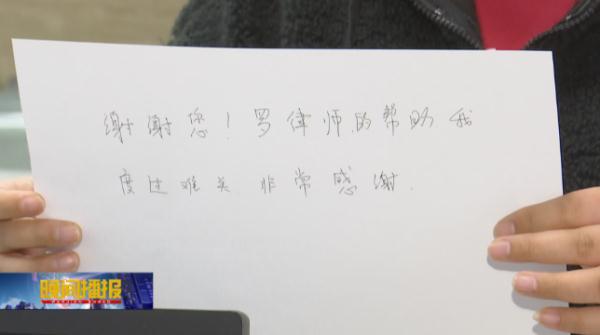 谢谢您！罗律师的帮助我
度过难关 非常感谢.
晚间播报